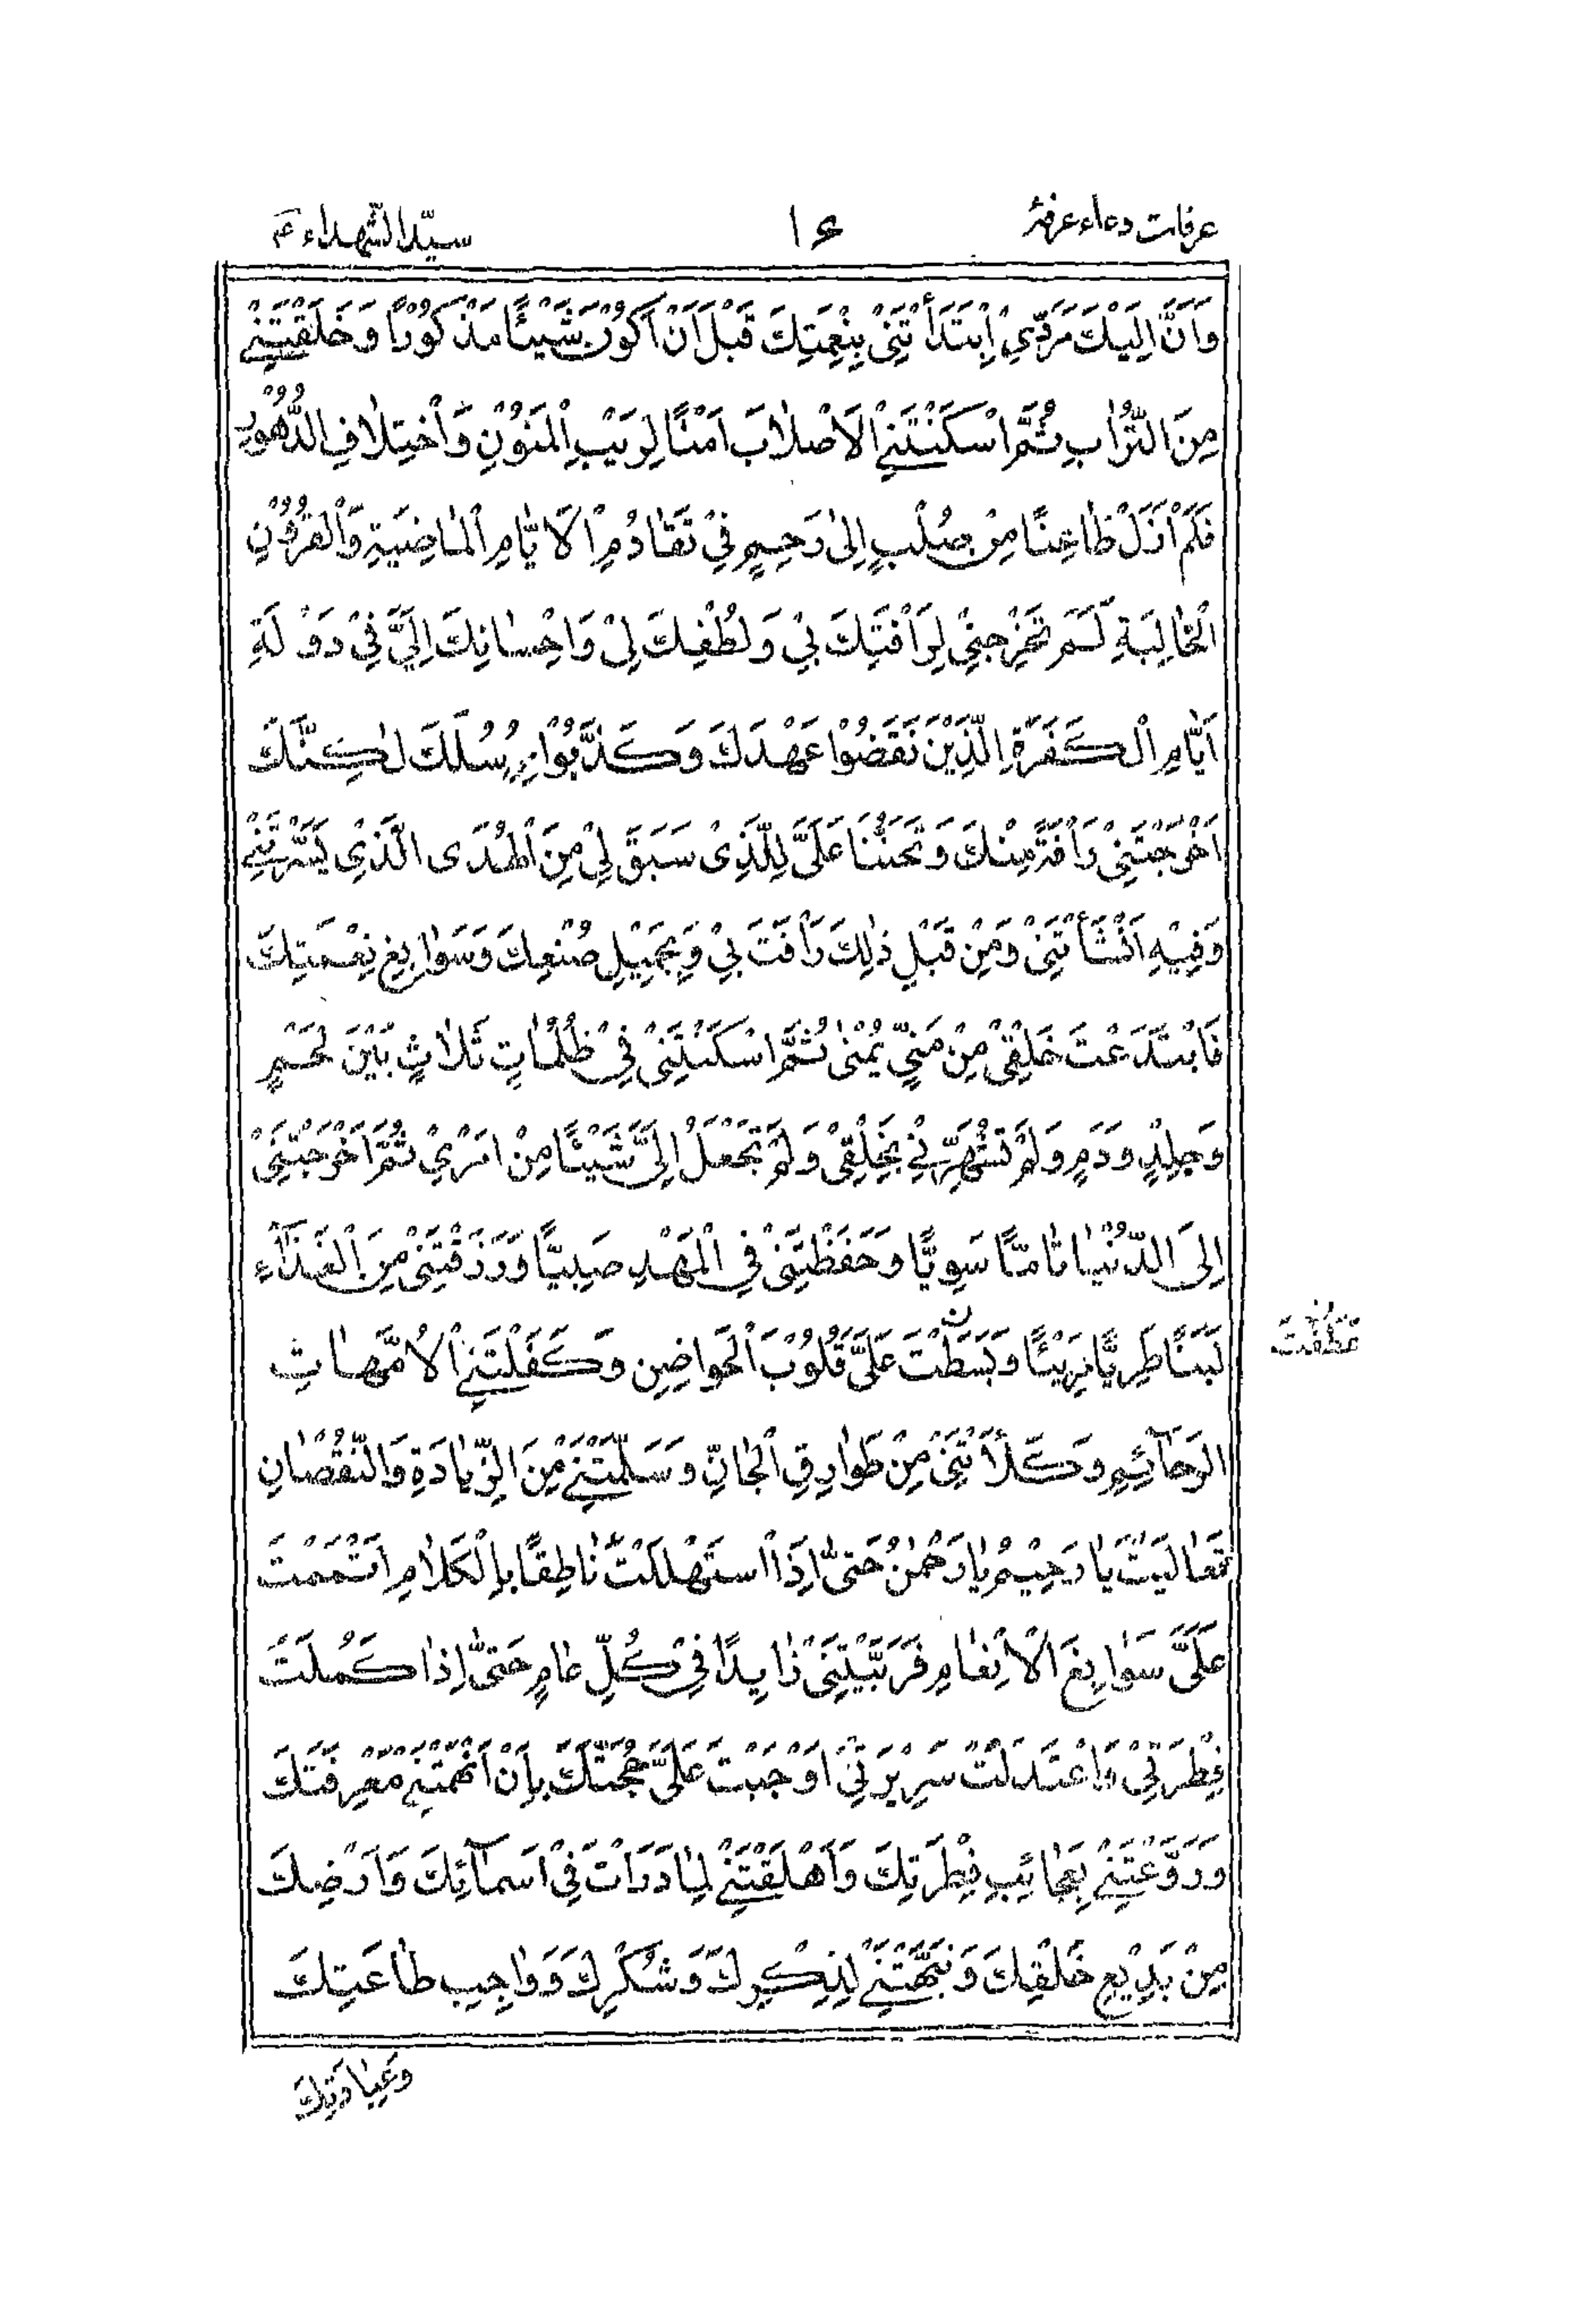 عرفات دعاء عرفهٔ ۱۶ سيّد الشّهداء ع
وَاَنَّ اِلَيْكَ مَرَدِّيْ اِبْتَدَأْتَنِيْ بِنِعْمَتِكَ قَبْلَ اَنْ اَكُوْنَ شَيْئًا مَذْكُوْرًا وَ خَلَقْتَنِيْ
مِنَ التُّرٰابِ ثُمَّ اَسْكَنْتَنِيْ الْاَصْلٰابَ اَمْنًا لِرَيْبِ الْمَنُوْنِ وَاخْتِلٰافِ الدُّهُوْرِ
فَلَمْ اَزَلْ ظٰاعِنًا مِنْ صُلْبٍ اِلىٰ رَحِمٍ فِيْ تَقٰادُمِ الْاَيّٰامِ الْمٰاضِيَةِ وَالْقُرُوْنِ
الْخٰالِيَةِ لَمْ تُخْرِجْنِيْ لِرَاْفَتِكَ بِيْ وَ لُطْفِكَ لِيْ وَ اِحْسٰانِكَ اِلَيَّ فِيْ دَوْلَةِ
اَيّٰامِ الْكَفَرَةِ الَّذِيْنَ نَقَضُوْا عَهْدَكَ وَ كَذَّبُوْا بِرُسُلَكَ لٰكِنَّكَ
اَخْرَجْتَنِيْ رَاْفَةً مِنْكَ وَ تَحَنُّنًا عَلَيَّ لِلَّذِىْ سَبَقَ لِيْ مِنَ الْهُدَى الَّذِيْ يَسَّرْتَنِيْ
وَفِيْهِ اَنْشَأْتَنِيْ وَ مِنْ قَبْلِ ذٰلِكَ رَاَفْتَ بِيْ وَ بِجَمِيْلِ صُنْعِكَ وَ سَوٰابِغِ نِعْمَتِكَ
فَابْتَدَعْتَ خَلْقِيْ مِنْ مَنِيٍّ يُمْنىٰ ثُمَّ اَسْكَنْتَنِيْ فِيْ ظُلُمٰاتٍ ثَلٰاثٍ بَيْنَ لَحْمٍ
وَ جِلْدٍ وَ دَمٍ وَ لَمْ تُشَهِّرْنِيْ بِخَلْقِيْ وَ لَمْ تَجْعَلْ اِلَيَّ شَيْئًا مِنْ اَمْرِيْ ثُمَّ اَخْرَجْتَنِيْ
اِلىَ الدُّنْيٰا تٰامًّا سَوِيًّا وَ حَفَظْتَنِيْ فِي الْمَهْدِ صَبِيًّا وَ رَزَقْتَنِيْ مِنَ الْغَذٰٓاءِ
لَبَنًا طَرِيًّا مَرِيْئًا وَ بَسَطْتَ عَلَيَّ قُلُوْبَ الْحَوٰاضِنِ وَ كَفَلْتَنِيْ الْاُمَّهٰاتِ
عَطَفْتَ
الرَّحٰٓائِمِ وَ كَلَأْتَنِيْ مِنْ طَوٰارِقِ الْجٰانِّ وَ سَلَّمْتَنِيْ مِنَ الزِّيٰادَةِ وَ النُّقْصٰانِ
تَعٰالَيْتَ يٰا رَحِيْمُ يٰا رَحْمٰنُ حَتّىٰ اِذَا اسْتَهْلَلْتُ نٰاطِقًا بِالْكَلٰامِ اَتْمَمْتَ
عَلَيَّ سَوٰابِغَ الْاِنْعٰامِ فَرَبَّيْتَنِيْ زٰايِدًا فِيْ كُلِّ عٰامٍ حَتّىٰ اِذٰا كَمُلَتْ
فِطْرَتِيْ وَ اعْتَدَلَتْ سَرِيْرَتِيْ اَوْجَبْتَ عَلَيَّ حُجَّتَكَ بِاَنْ اَلْهَمْتَنِيْ مَعْرِفَتَكَ
وَ رَوَّعْتَنِيْ بِعَجٰائِبِ فِطْرَتِكَ وَ اَهْلَقْتَنِيْ لِمٰا ذَرَاْتَ فِيْ اَسَمٰٓائِكَ وَ اَرْضِكَ
مِنْ بَدِيْعِ خَلْقِكَ وَ نَبَّهْتَنِيْ لِذِكْرِكَ وَ شُكْرِكَ وَ وٰاجِبِ طٰاعَتِكَ
وَ عِبٰادَتِكَ